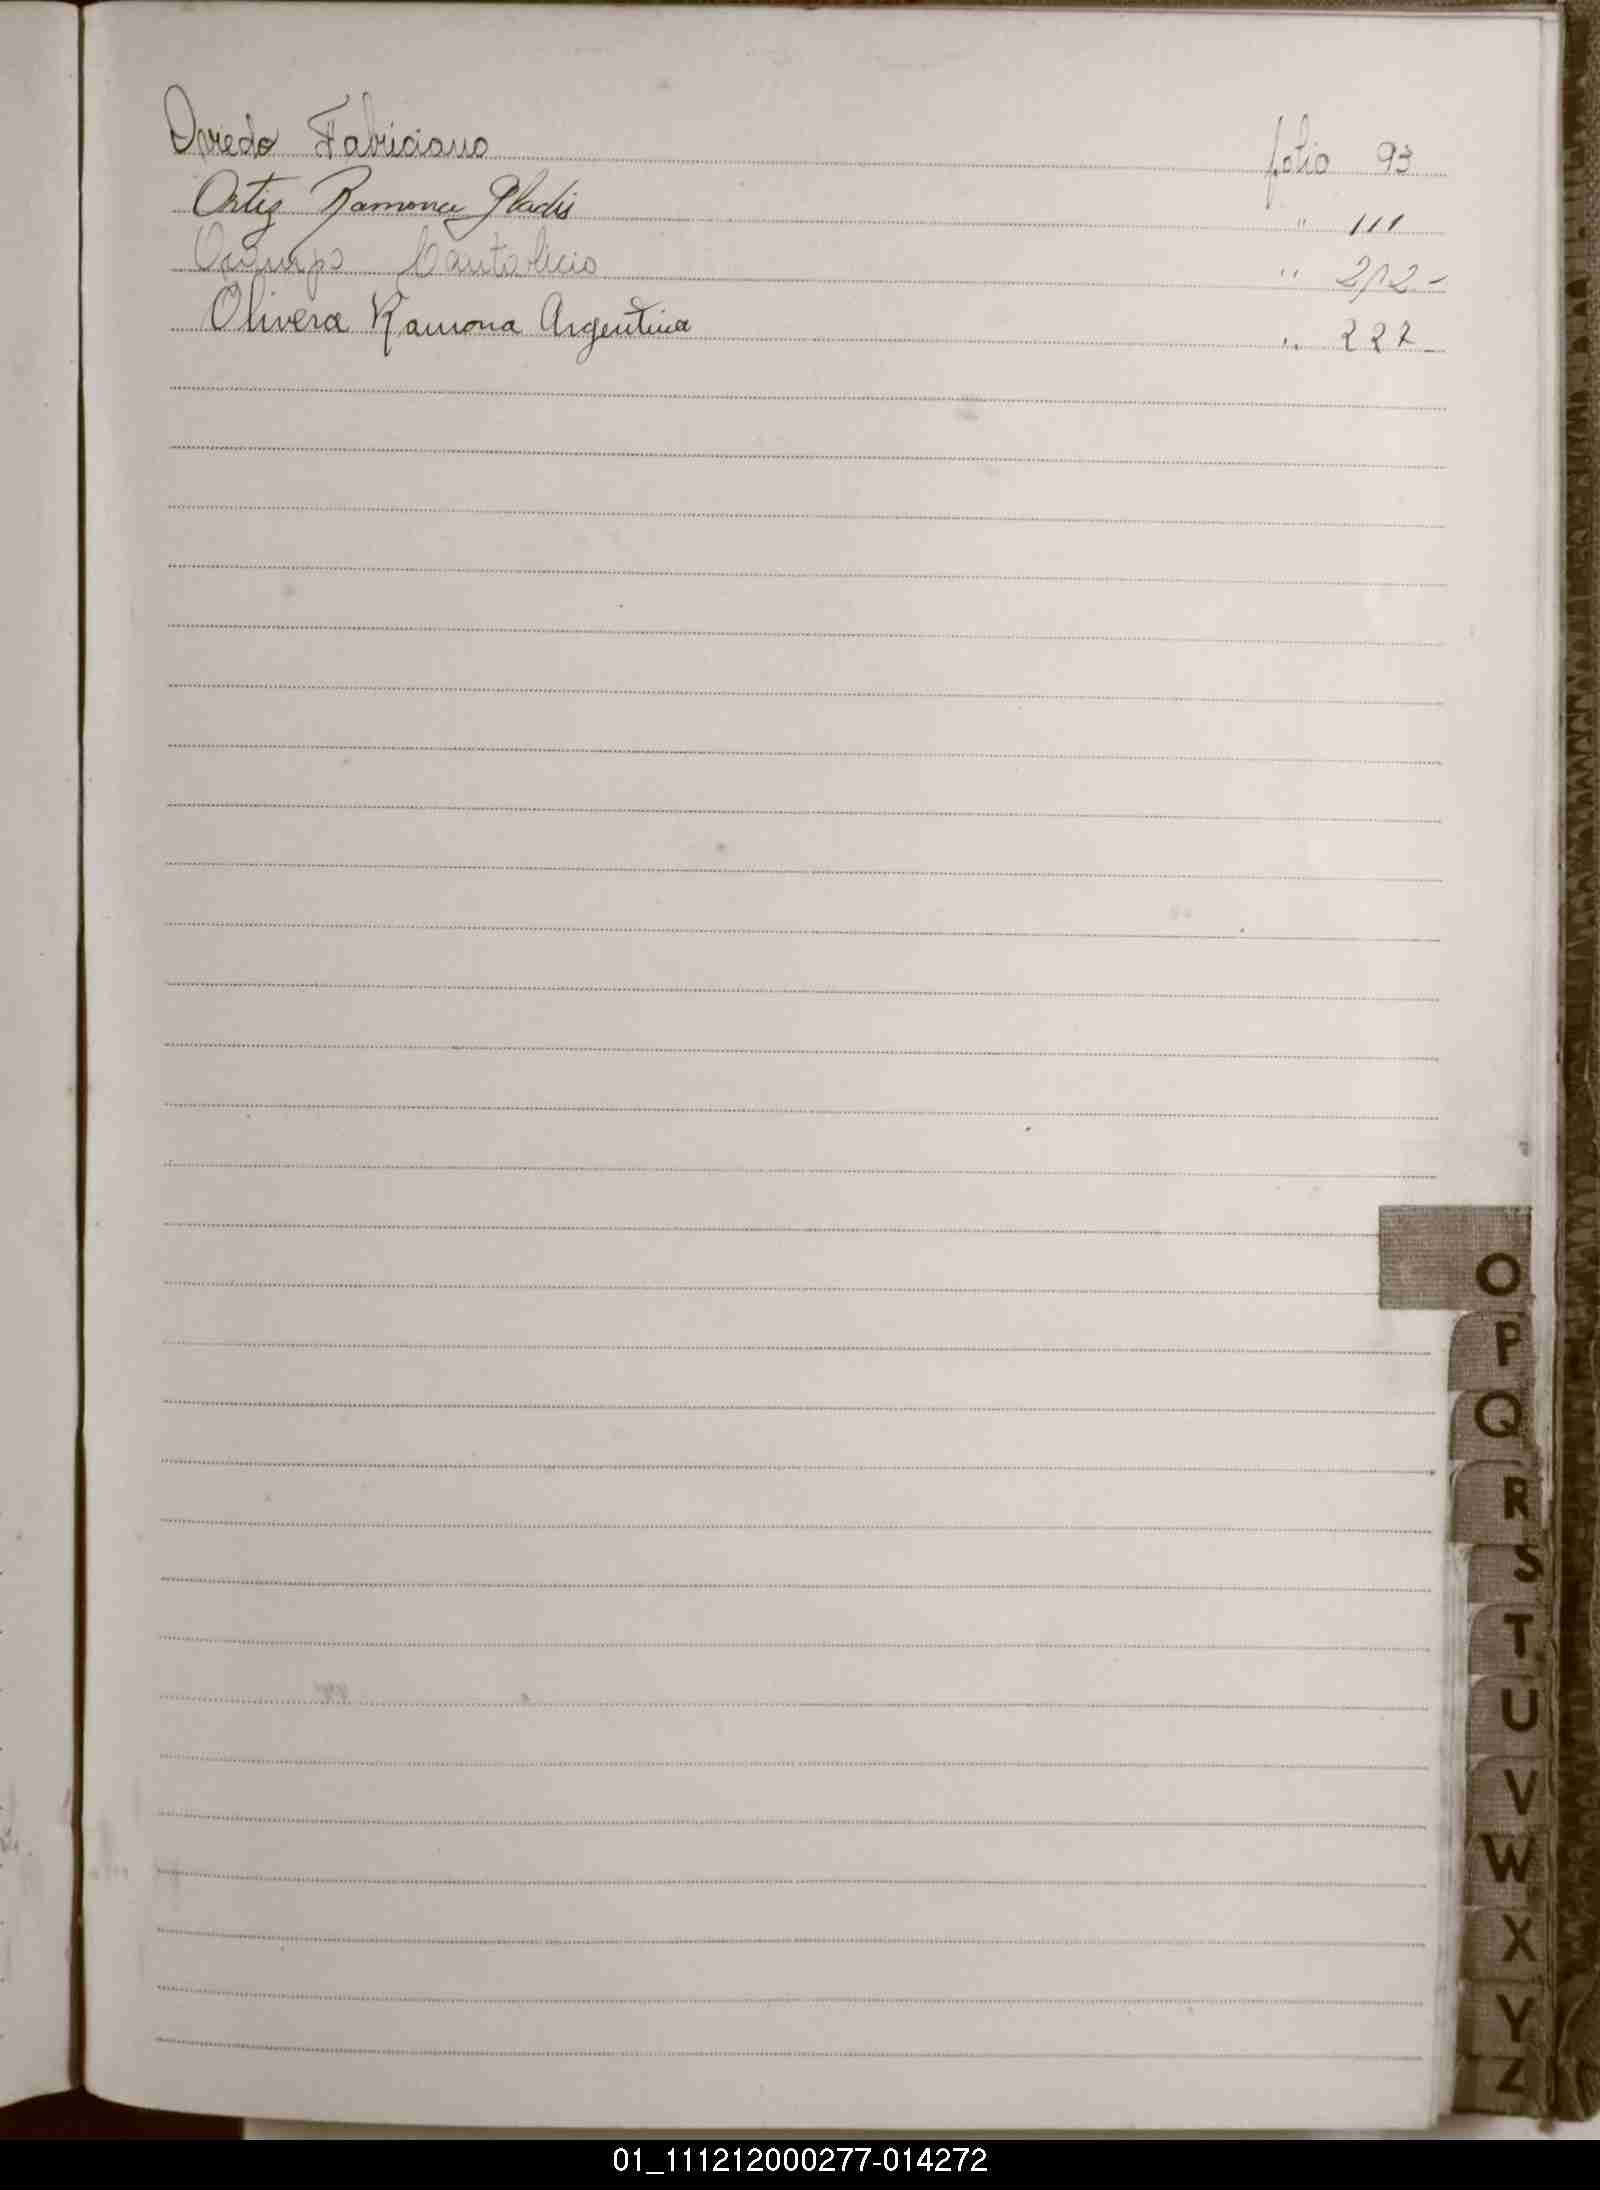 Oviedo Fabriciano folio 93
Ortiz Ramona Gladis " 111
Ocampo Cantalicio " 212-
Olivera Ramona Argentina " 227-
O
P
Q
R
S
T
U
V
W
X
Y
Z
01_111212000277-014272